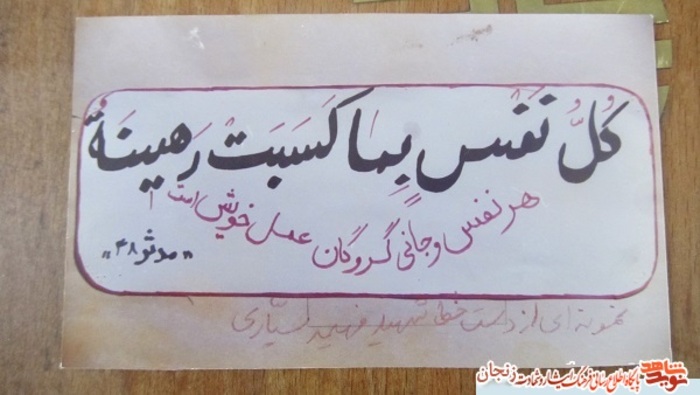 كُلُّ نَفْسٍ بِمَا كَسَبَتْ رَهِينَةٌ
هر نفس و جانی گروگان عمل خویش است
«مدثر ۳۸»
نمونه ای از دست خط شهید فهیمه سیّاری
نوید شاهد پایگاه اطلاع رسانی فرهنگ ایثار و شهادت زنجان